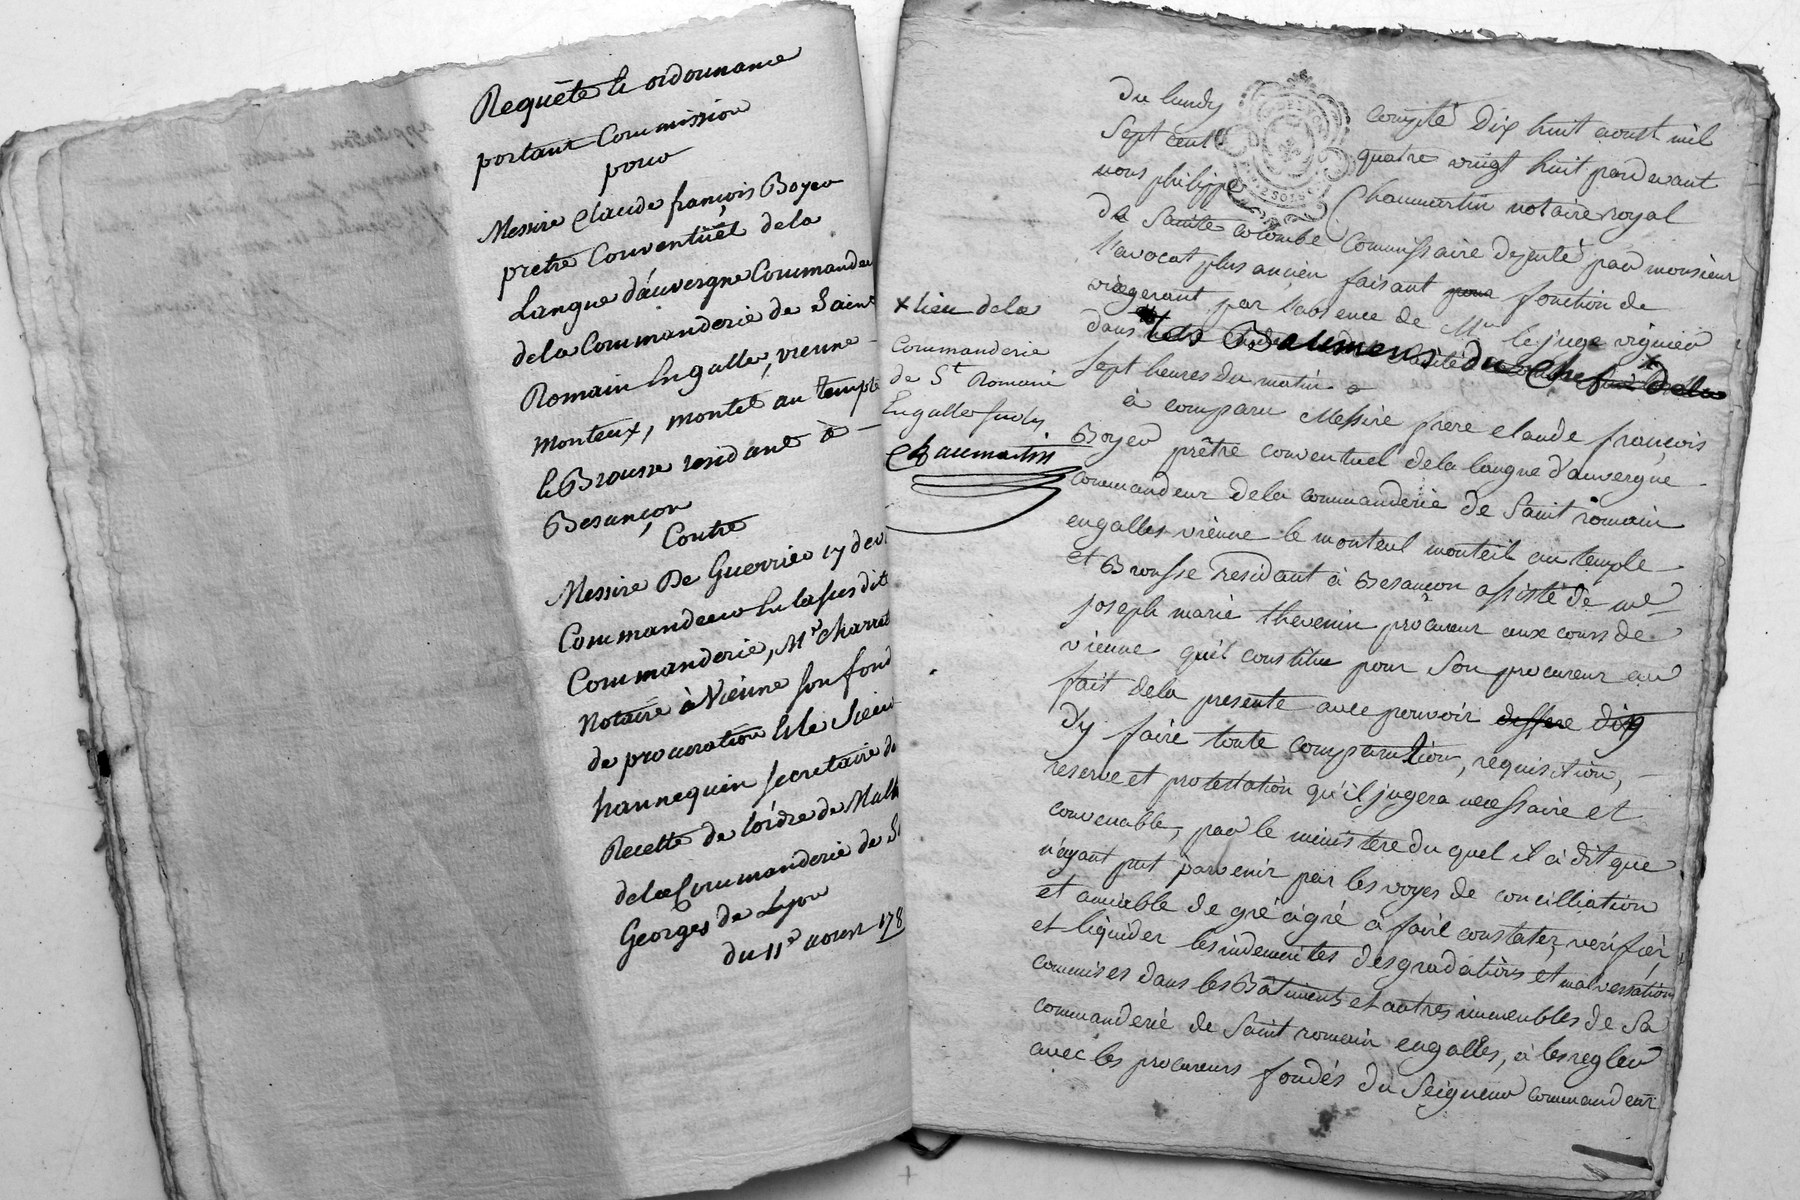 Requête & ordonnance
portant Commission
pour
Messire Claude françois Boyer
pretre Conventuel dela
Langue d'auvergne Commandeur
dela Commanderie de Saint
Romain Engalle, vienne
monteux, monteil au temple
& Brousse residant à
Besançon
Contre
Messire De Guerrier
Commandeur En la susdite
Commanderie, Mr Charret
Notaire à Vienne son fond
de procuration & le Sieur
hannequin secretaire de
Recette de l'ordre de Malt
dela Commanderie de St
Georges de Lyon
du 11e aoust 178
+ lieu dela
Commanderie
de St Romain
Engalle
Chaumartin
du lundy compté Dix huit aoust mil
Sept cent quatre vingt huit pardevant
nous philippe Chaumartin notaire royal
de Sainte colombe Commissaire deputé par monsieur
l'avocat plus ancien faisant pour fonction de
vicegerant par l'absence de Mr le juge viguier
dans les Batimens du Chef dela
sept heures du matin
à comparu Messire frere claude françois
Boyer prêtre conventuel dela langue d'auvergne
commandeur dela commanderie de Saint romain
engalles vienne le monteul monteil au temple
et Brousse residant à Besançon assisté de me
joseph marie thevenin procureur aux cours de
vienne qu'il constitue pour son procureur au
fait dela presente avec pouvoir
d'y faire toute comparution, requisition,
reserve et protestation qu'il jugera necessaire et
convenable, par le ministere du quel il a dit que
n'ayant put parvenir par les voyes de concilliation
et amiable de gré à gré à faire constater, verifier,
et liquider les indemnites desgradations et malversations
commises dans les Bâtiments et autres immeubles de Sa
commanderie de Saint romain engalles, à les regler
avec les procureurs fondés du Seigneur commandeur